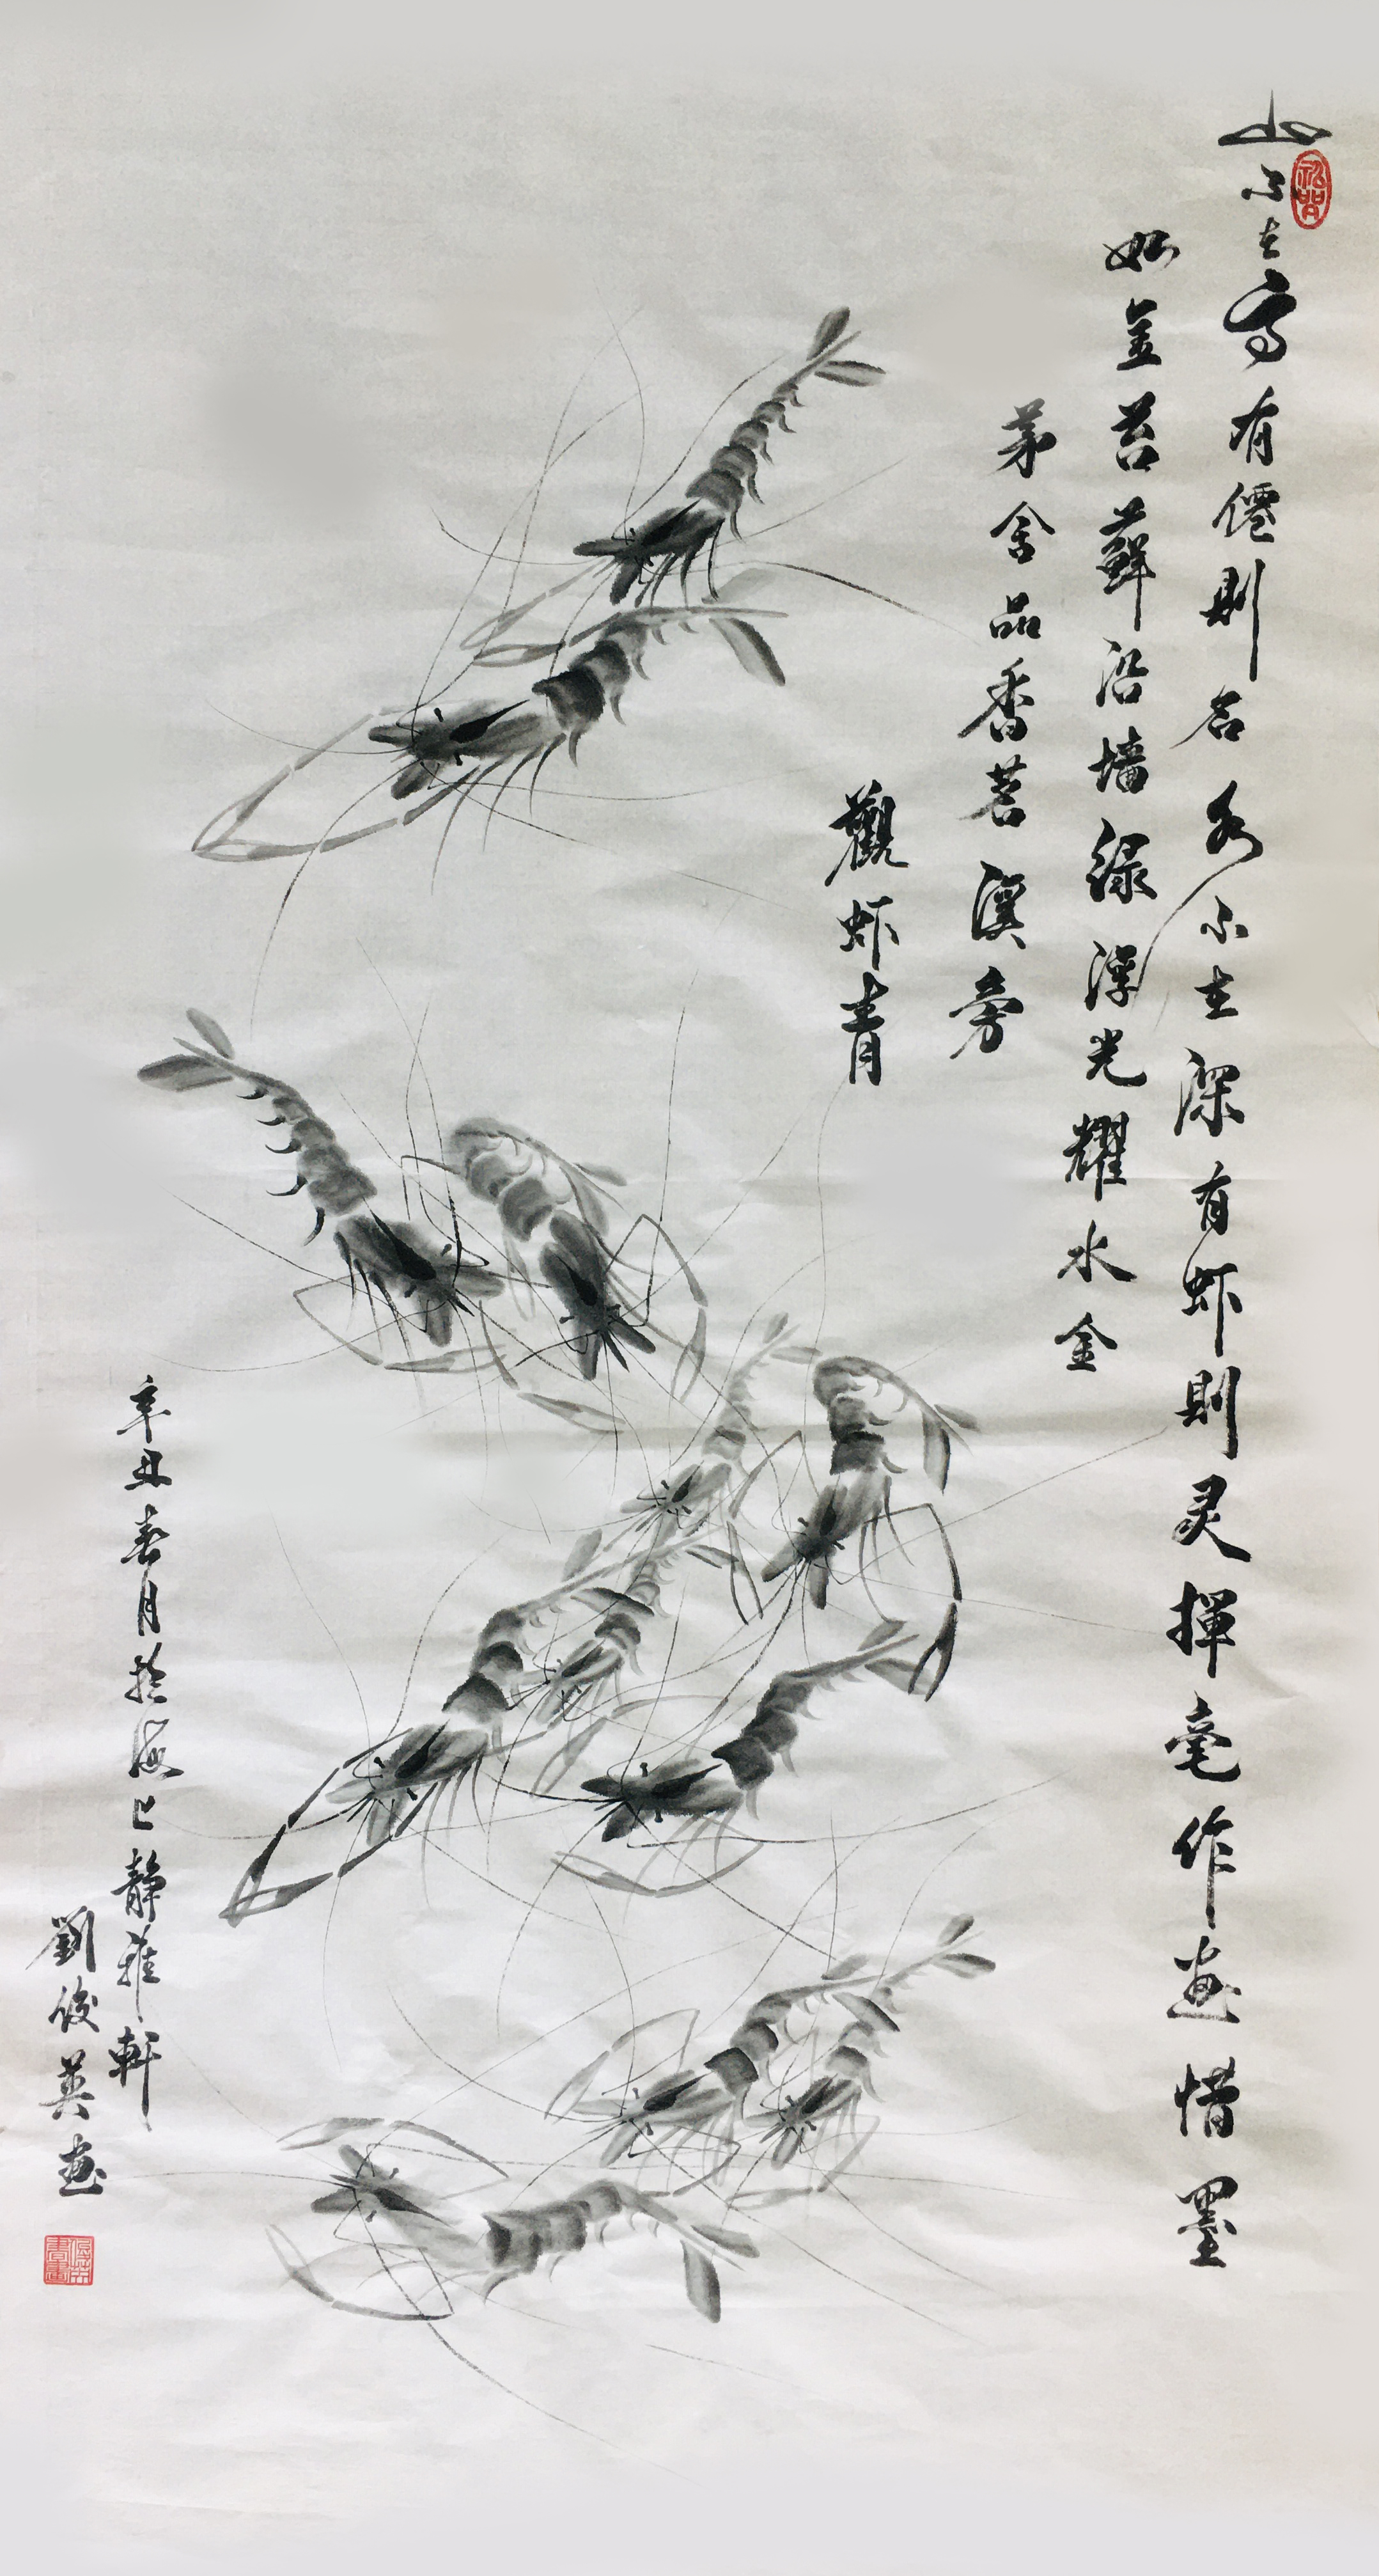 山不在高有僊則名水不在深有虾則灵揮毫作画惜墨
如金苔蘚沿墙绿浮光耀水金
茅舍品香茗溪旁
觀虾青
辛丑春月於海上静雅軒
劉俊英画